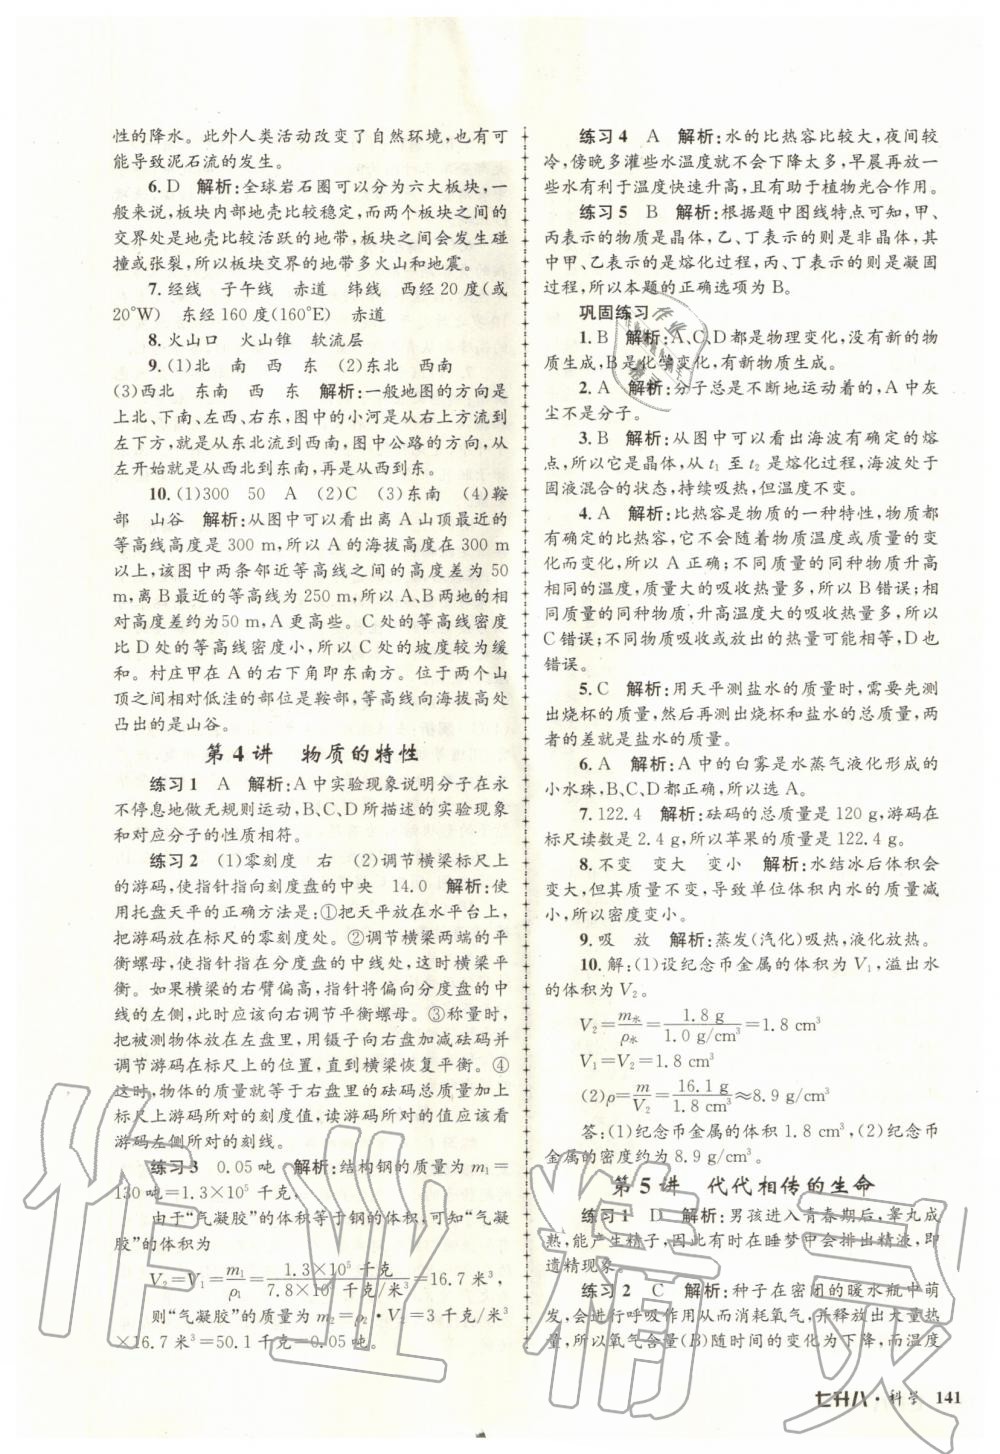 性的降水。此外人类活动改变了自然环境,也有可
能导致泥石流的发生。
6. D 解析:全球岩石圈可以分为六大板块,一
般来说,板块内部地壳比较稳定,而两个板块之间的
交界处是地壳比较活跃的地带,板块之间会发生碰
撞或张裂,所以板块交界的地带多火山和地震。
7. 经线 子午线 赤道 纬线 西经 20 度(或
20°W) 东经 160 度(160°E) 赤道
8. 火山口 火山锥 软流层
9. (1)北 南 西 东 (2)东北 西南
(3)西北 东南 西 东 解析:一般地图的方向是
上北、下南、左西、右东,图中的小河是从右上方流到
左下方,就是从东北流到西南,图中公路的方向,从
左开始是从西北到东南,再是从西到东。
10. (1)300 50 A (2)C (3)东南 (4)鞍
部 山谷 解析:从图中可以看出离 A 山顶最近的
等高线高度是 300 m,所以 A 的海拔高度在 300 m
以上,该图中两条邻近等高线之间的高度差为 50
m,离 B 最近的等高线为 250 m,所以 A、B 两地的相
对高度差约为50 m,A 更高些。C 处的等高线密度
比 D 处的等高线密度小,所以 C 处的坡度较为缓
和。村庄甲在 A 的右下角即东南方。位于两个山
顶之间相对低洼的部位是鞍部,等高线向海拔高处
凸出的是山谷。
第 4 讲 物质的特性
练习 1 A 解析:A 中实验现象说明分子在永
不停息地做无规则运动,B、C、D 所描述的实验现象
和对应分子的性质相符。
练习 2 (1)零刻度 右 (2)调节横梁标尺上
的游码,使指针指向刻度盘的中央 14.0 解析:使
用托盘天平的正确方法是:①把天平放在水平台上,
把游码放在标尺的零刻度处。②调节横梁两端的平
衡螺母,使指针指在分度盘的中线处,这时横梁平
衡。如果横梁的右臂偏高,指针将偏向分度盘的中
线的左侧,此时应该向右调节平衡螺母。③称量时,
把被测物体放在左盘里,用镊子向右盘加减砝码并
调节游码在标尺上的位置,直到横梁恢复平衡。④
这时,物体的质量就等于右盘里的砝码总质量加上
标尺上游码所对的刻度值,读游码所对的值应该看
游码左侧所对的刻线。
练习 3 0.05 吨 解析:结构钢的质量为 m₁=
130 吨=1.3×10⁵ 千克,
由于“气凝胶”的体积等于钢的体积,可知“气凝
胶”的体积为
V₂=V₁=m₁/ρ₁=1.3×10⁵ 千克/7.8×10³ 千克/米³=16.7 米³,
则“气凝胶”的质量为 m₂=ρ₂·V₂=3 千克/米³
×16.7 米³=50.1 千克=0.05 吨。
练习 4 A 解析:水的比热容比较大,夜间较
冷,傍晚多灌些水温度就不会下降太多,早晨再放一
些水有利于温度快速升高,且有助于植物光合作用。
练习 5 B 解析:根据题中图线特点可知,甲、
丙表示的物质是晶体,乙、丁表示的则是非晶体,其
中甲、乙表示的是熔化过程,丙、丁表示的则是凝固
过程,所以本题的正确选项为 B。
巩固练习
1. B 解析:A、C、D 都是物理变化,没有新的物
质生成,B 是化学变化,有新物质生成。
2. A 解析:分子总是不断地运动着的,A 中灰
尘不是分子。
3. B 解析:从图中可以看出海波有确定的熔
点,所以它是晶体,从 t₁ 至 t₂ 是熔化过程,海波处于
固液混合的状态,持续吸热,但温度不变。
4. A 解析:比热容是物质的一种特性,物质都
有确定的比热容,它不会随着物质温度或质量的变
化而变化,所以 A 正确;不同质量的同种物质升高
相同的温度,质量大的吸收热量多,所以 B 错误;相
同质量的同种物质,升高温度大的吸收热量多,所以
C 错误;不同物质吸收或放出的热量可能相等,D 也
错误。
5. C 解析:用天平测盐水的质量时,需要先测
出烧杯的质量,然后再测出烧杯和盐水的总质量,两
者的差就是盐水的质量。
6. A 解析:A 中的白雾是水蒸气液化形成的
小水珠,B、C、D 都正确,所以选 A。
7. 122.4 解析:砝码的总质量是 120 g,游码在
标尺读数是 2.4 g,所以苹果的质量是 122.4 g。
8. 不变 变大 变小 解析:水结冰后体积会
变大,但其质量不变,导致单位体积内水的质量减
小,所以密度变小。
9. 吸 放 解析:蒸发(汽化)吸热,液化放热。
10. 解:(1)设纪念币金属的体积为 V₁,溢出水
的体积为 V₂。
V₂=m水/ρ水=1.8 g/1.0 g/cm³=1.8 cm³
V₁=V₂=1.8 cm³
(2)ρ=m/V₂=16.1 g/1.8 cm³≈8.9 g/cm³
答:(1)纪念币金属的体积 1.8 cm³,(2)纪念币
金属的密度约为 8.9 g/cm³。
第 5 讲 代代相传的生命
练习 1 D 解析:男孩进入青春期后,睾丸成
熟,能产生精子,因此有时在睡梦中会排出精液,即
遗精现象。
练习 2 C 解析:种子在密闭的暖水瓶中萌
发,会进行呼吸作用从而消耗氧气,并释放出大量热
量,所以氧气含量(B)随时间的变化为下降,而温度
七升八·科学 141
作业精灵